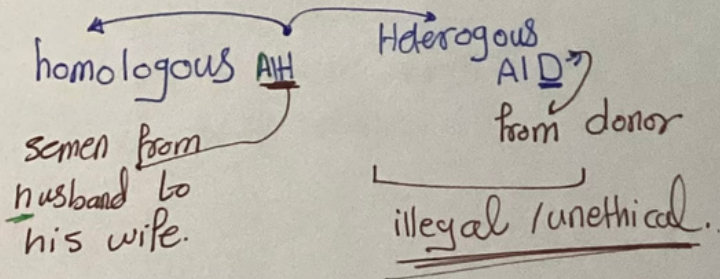 homologous AIH
semen from
husband to
his wife.
Heterogous
AID
from donor
illegal /unethical.